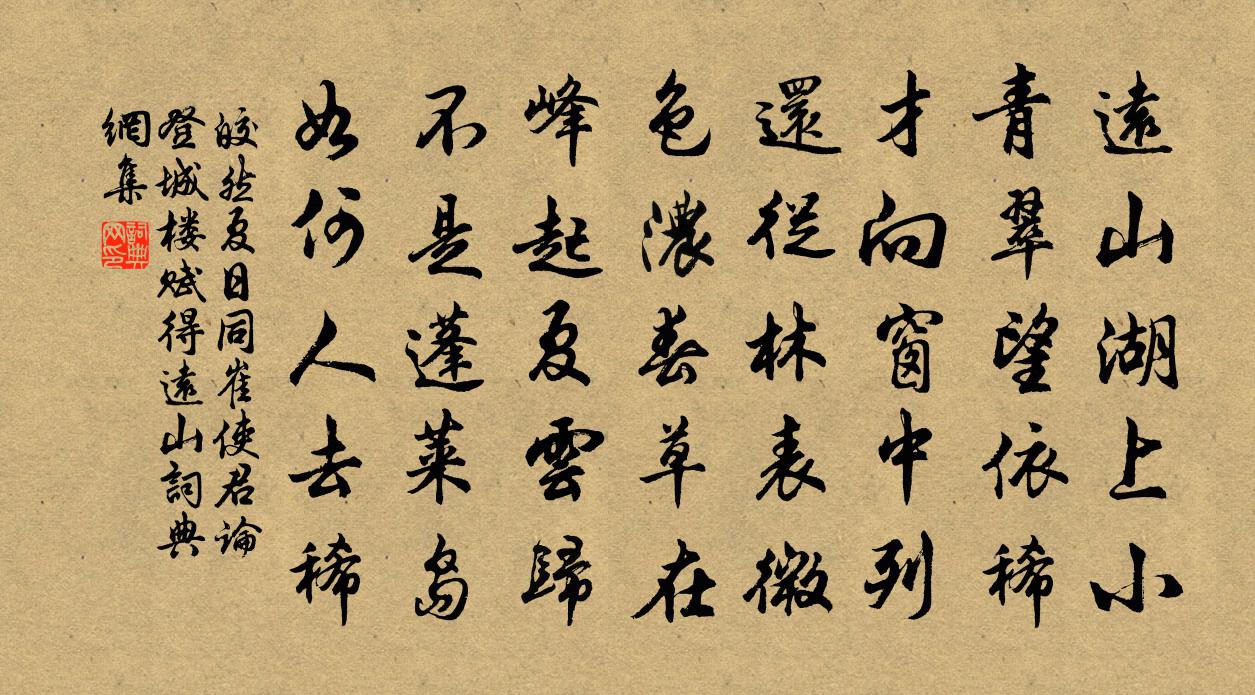 遠山湖上小
青翠望依稀
才向窗中列
還從林表微
色濃春草在
峰起夏雲歸
不是蓬萊島
如何人去稀
皎然夏日同崔使君论
登城楼赋得遠山詞典
網集
詞典网印